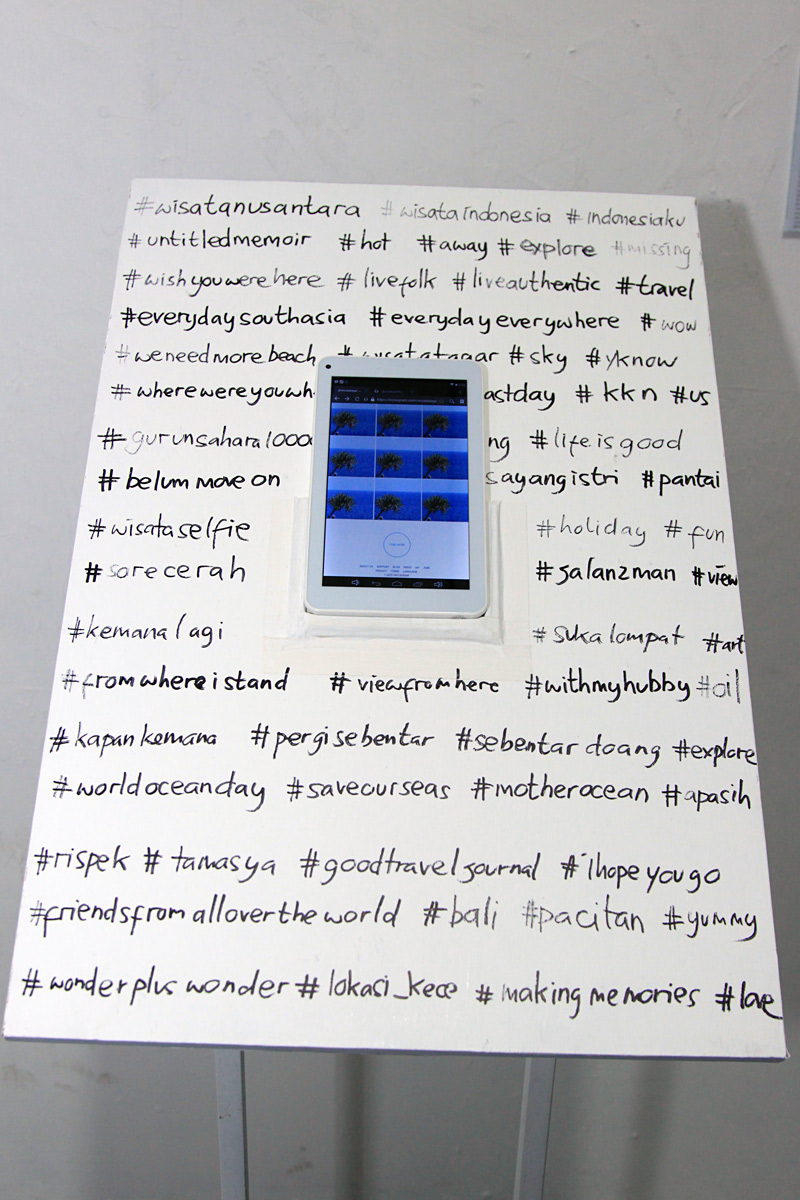 #wisatanusantara #wisataindonesia #indonesiaku
#untitledmemoir #hot #away #explore #missing
#wishyouwerehere #livefolk #liveauthentic #travel
#everydaysouthasia #everydayeverywhere #wow
#weneedmorebeach #sky #yknow
#wherewereyouwh astday #kkn #us
#gurunsahara1000 ng #lifeisgood
#belum move on sayangistri #pantai
#wisataselfie #holiday #fun
#sorecerah #jalanzman #view
#kemanalagi #sukalompat #art
#fromwhereistand #viewfromhere #withmyhubby #oil
#kapankemana #pergisebentar #sebentardoang #explore
#worldoceanday #saveourseas #motherocean #apasih
#rispek #tamasya #goodtraveljournal #ihopeyougo
#friendsfromallovertheworld #bali #pacitan #yummy
#wonderpluswonder #lokasi_kece #makingmemories #love